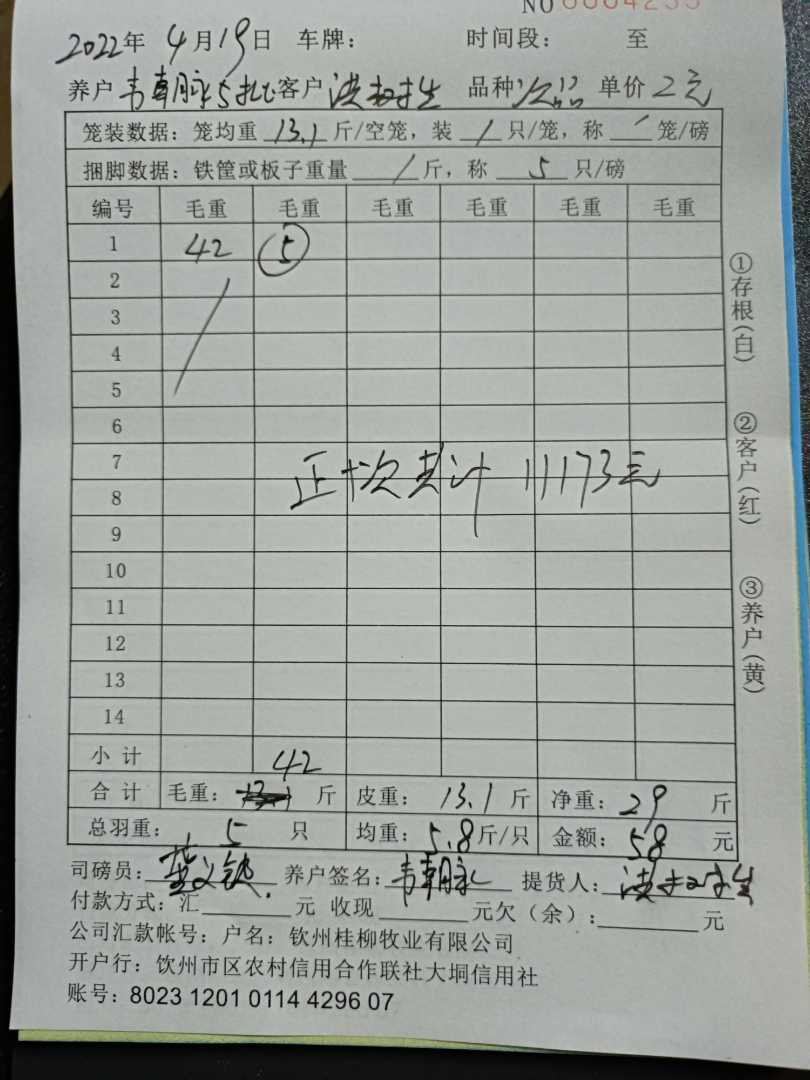 NO 0004255
2022年 4月19日 车牌: 时间段: 至
养户 韦朝脉 5批 客户 洪 生 品种 次品 单价 2元
笼装数据: 笼均重 13.1 斤/空笼, 装 / 只/笼, 称 / 笼/磅
捆脚数据: 铁筐或板子重量 / 斤, 称 5 只/磅
编号 毛重 毛重 毛重 毛重 毛重 毛重
1 42 5
2
3
4
5
6
7
正+次 共计 11173元
8
9
10
11
12
13
14
小计 42
合计 毛重: 斤 皮重: 13.1 斤 净重: 29 斤
总羽重: 5 只 均重: 5.8 斤/只 金额: 58 元
司磅员: 养户签名: 韦朝脉 提货人: 洪 生
付款方式: 汇 元 收现 元欠(余): 元
公司汇款帐号: 户名: 钦州桂柳牧业有限公司
开户行: 钦州市区农村信用合作联社大垌信用社
账号: 8023 1201 0114 4296 07
①存根(白)
②客户(红)
③养户(黄)